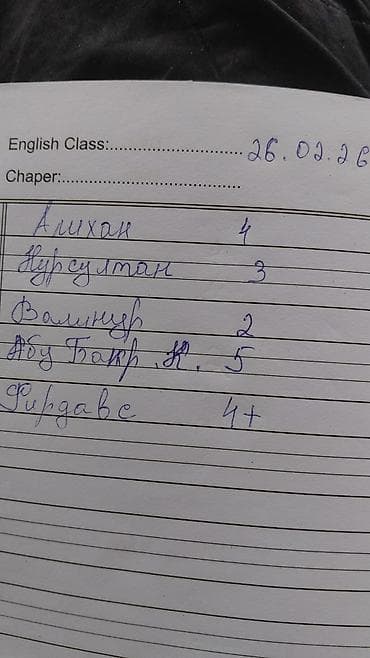 English Class:........................... 26.02.26
Chaper:.....................................
Алихан 4
Нурсултан 3
Валинур 2
Абу Бакр .К. 5
Фирдавс 4+